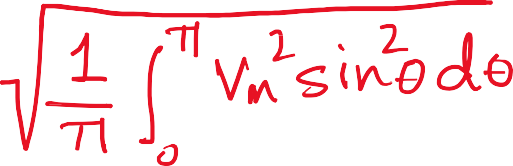 √(1/π ∫₀^π Vm² sin²θ dθ)